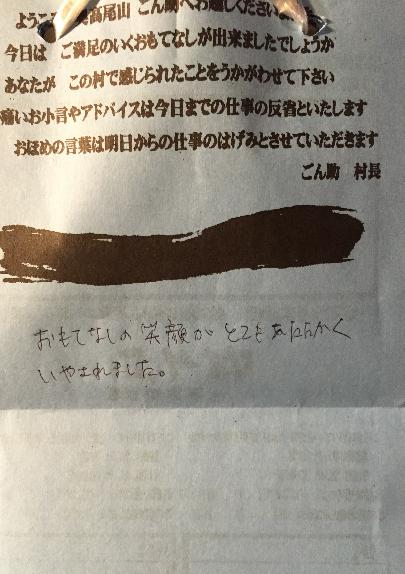 ようこそ 奥高尾山 ごん助へお越しくださいま
今日は ご満足のいくおもてなしが出来ましたでしょうか
あなたが この村で感じられたことをうかがわせて下さい
痛いお小言やアドバイスは今日までの仕事の反省といたします
おほめの言葉は明日からの仕事のはげみとさせていただきます
ごん助 村長
おもてなしの笑顔がとてもあたたかく
いやされました。